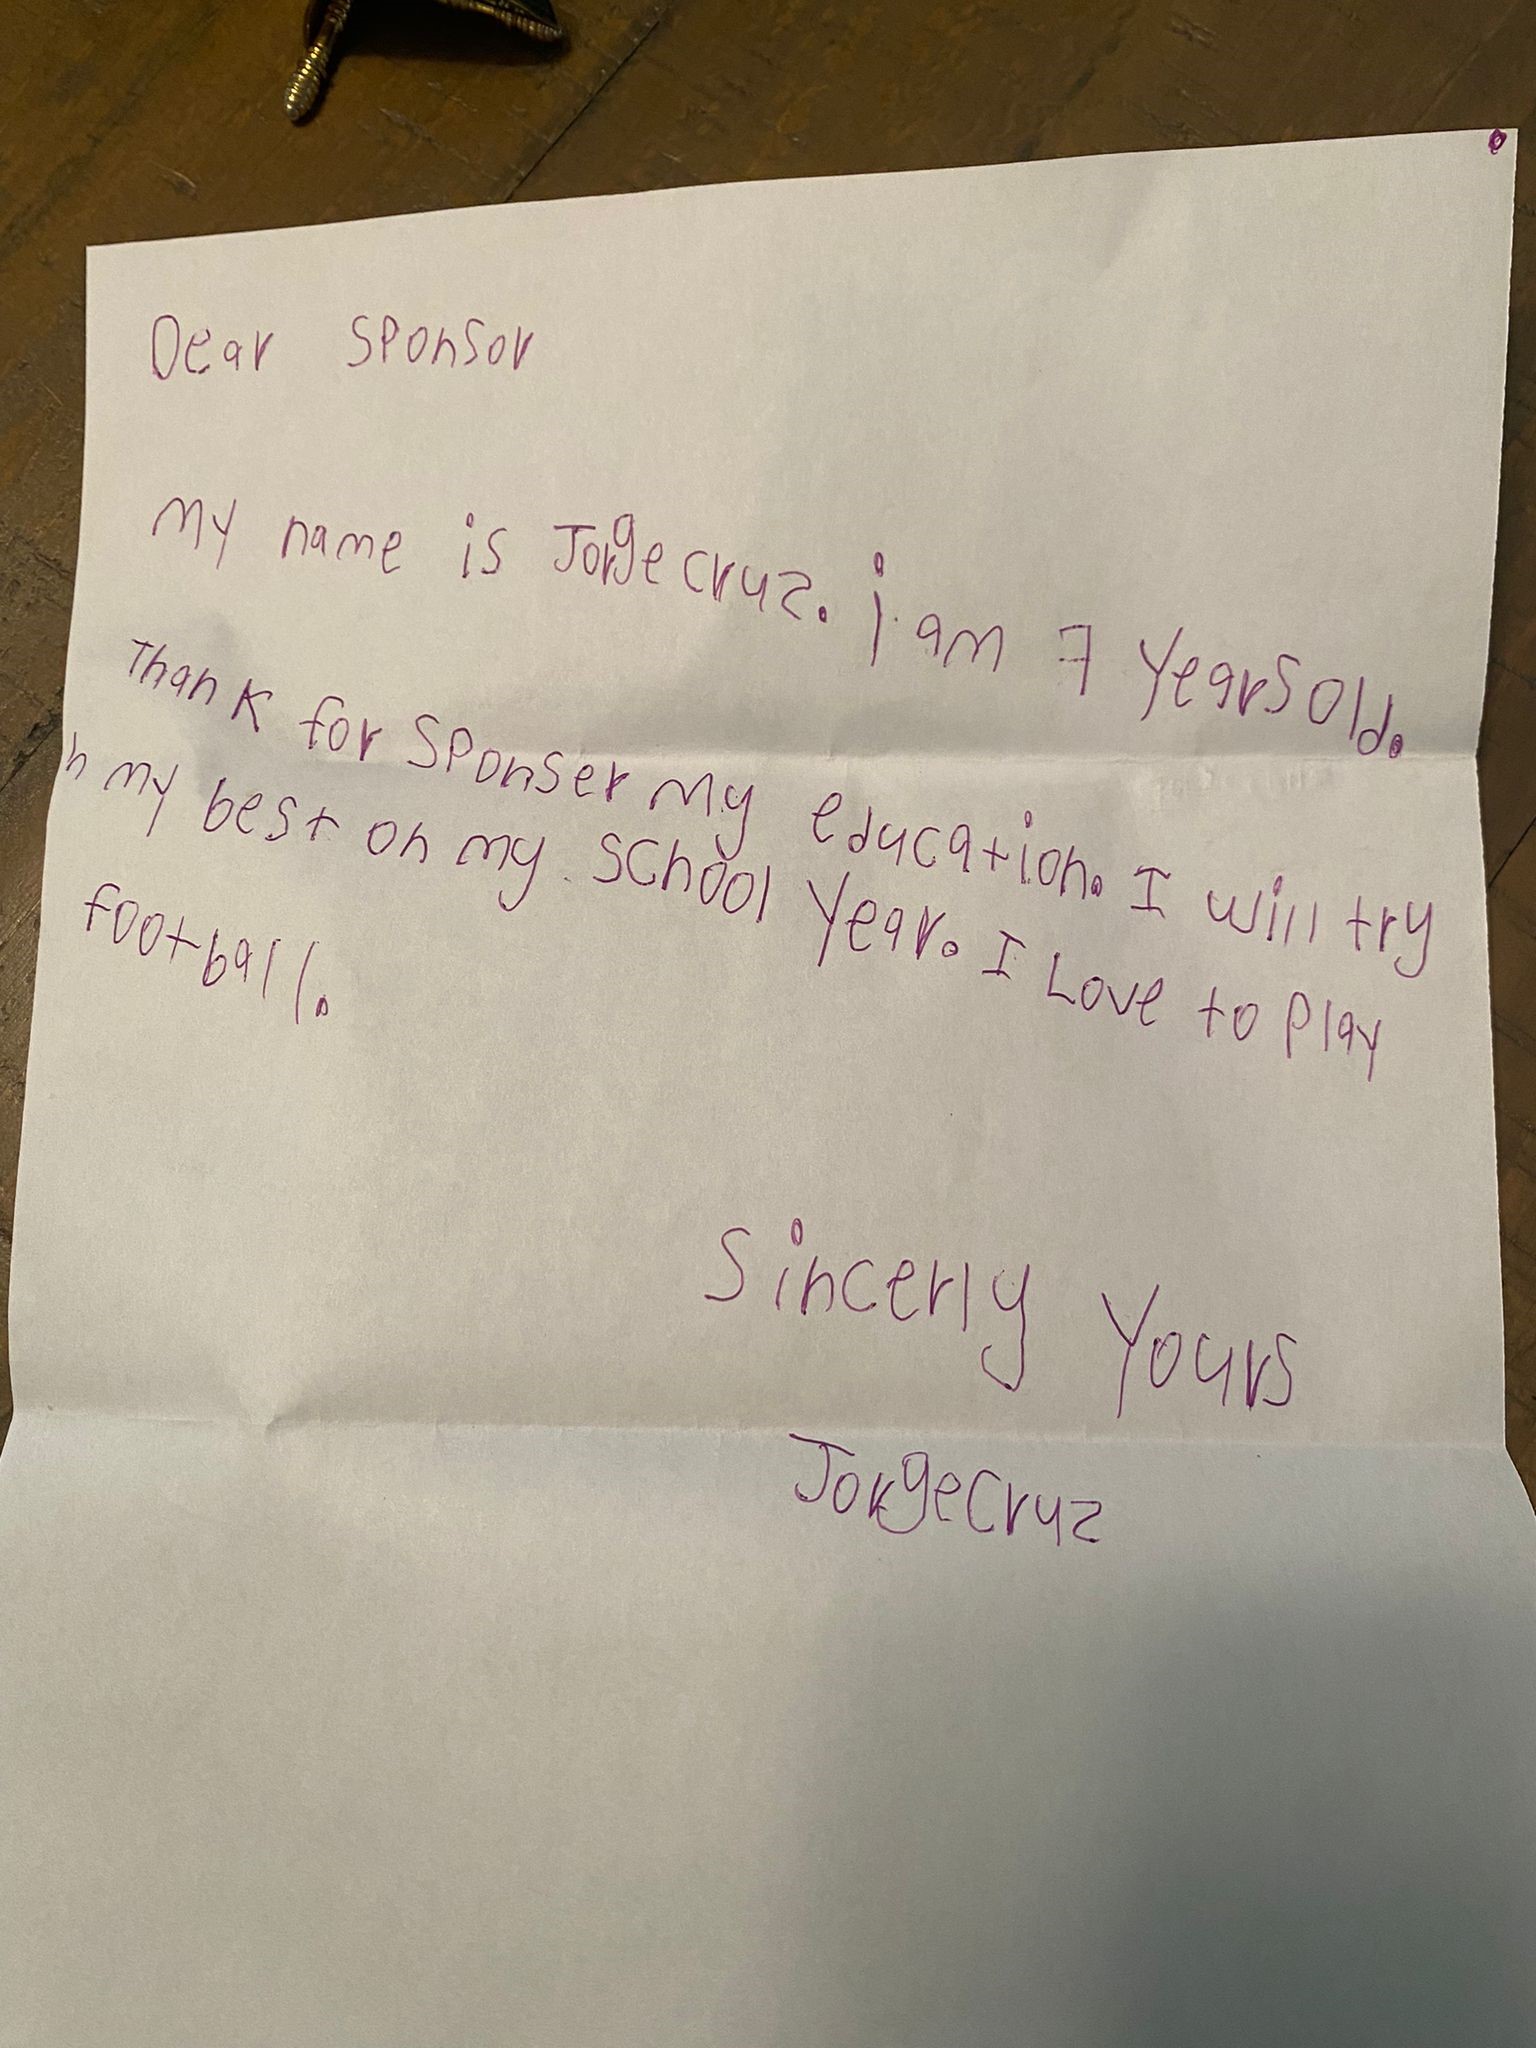 Dear Sponsor
My name is Jorge Cruz. i am 7 Years Old.
Thank for Sponser my education. I will try
h my best on my School Year. I Love to Play
football.
Sincerly Yours
Jorge Cruz